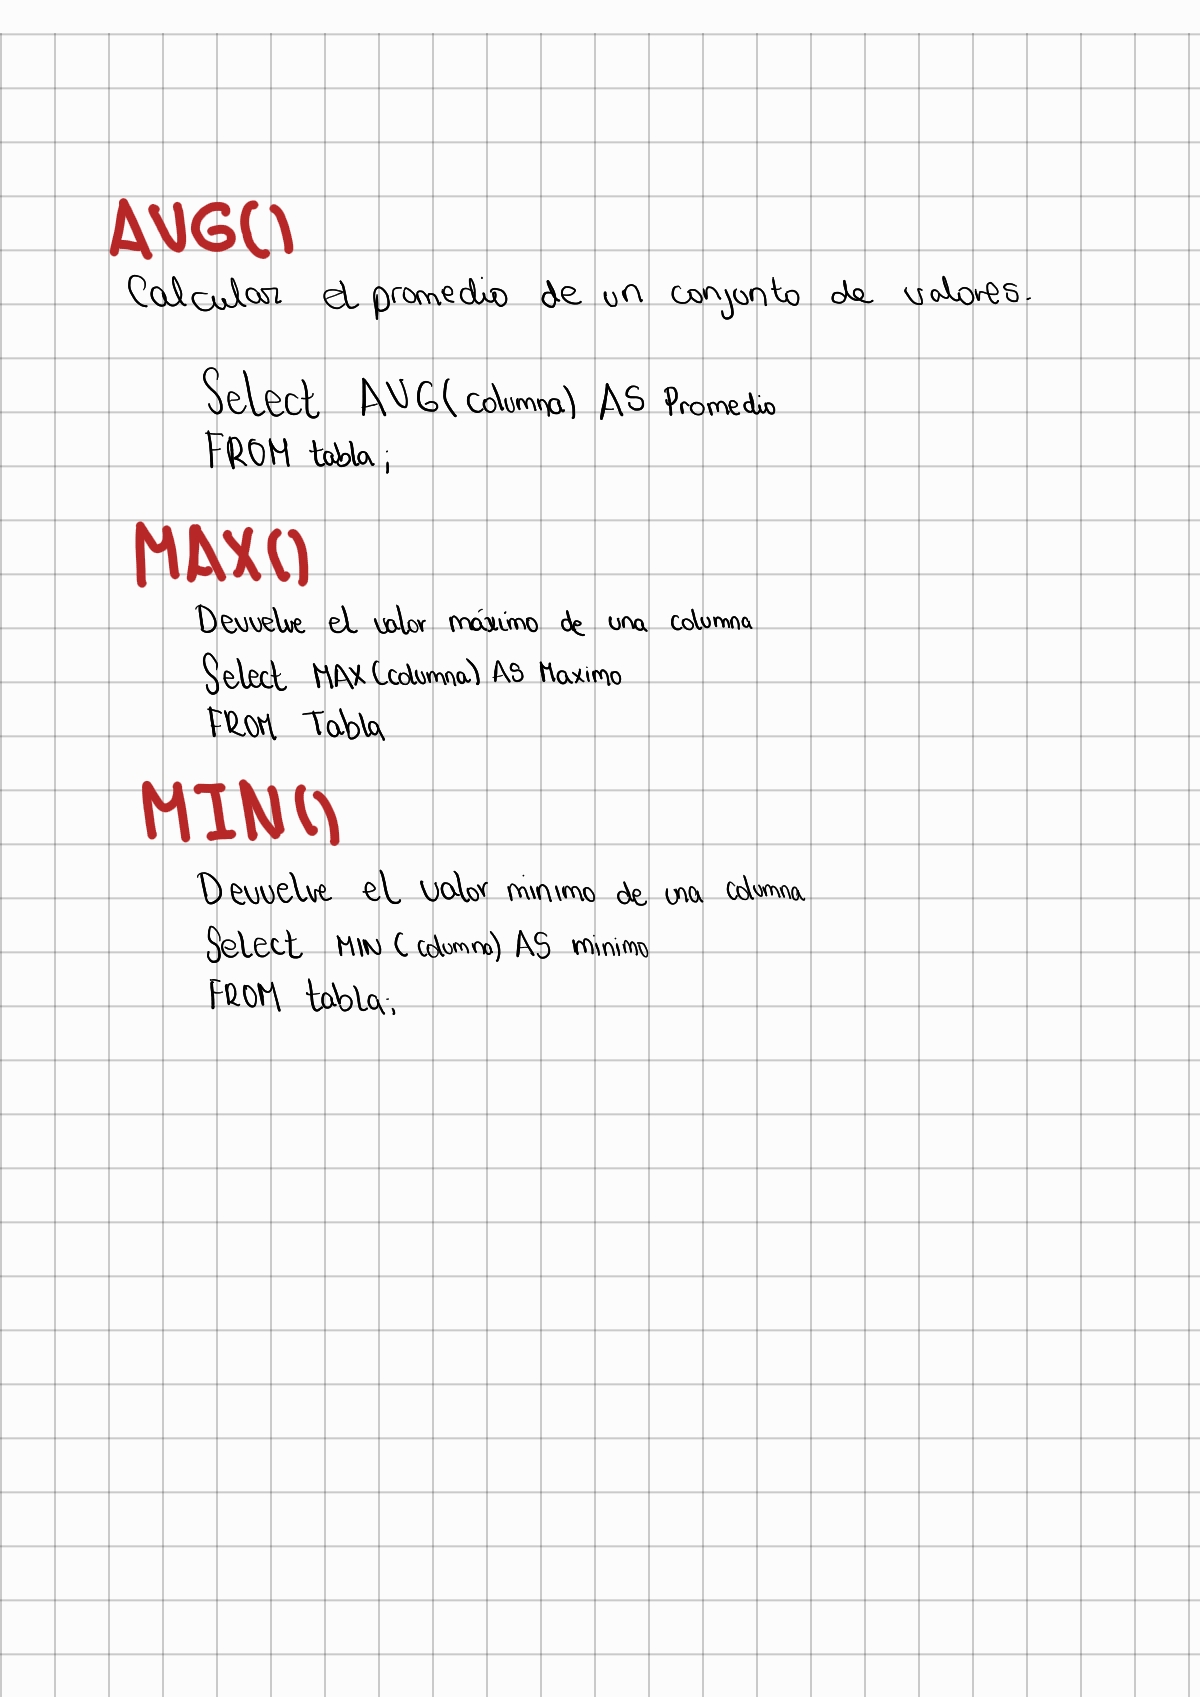 AVG()
Calcular el promedio de un conjunto de valores.
Select AVG(columna) AS Promedio
FROM tabla;
MAX()
Devuelve el valor máximo de una columna
Select MAX(columna) AS Maximo
FROM Tabla
MIN()
Devuelve el valor minimo de una columna
Select MIN (columna) AS minimo
FROM tabla;